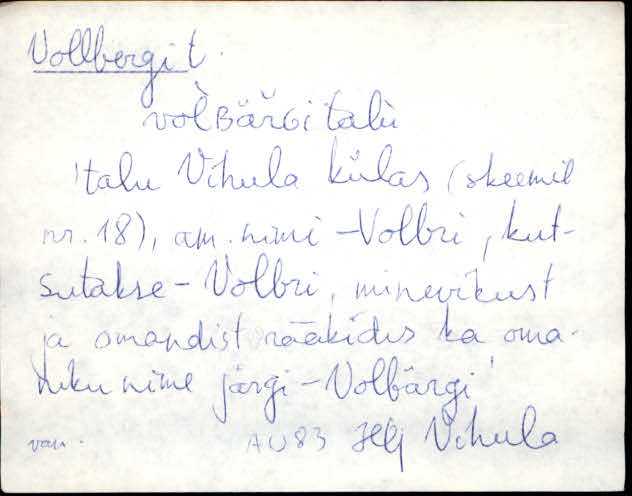 Vollbergi t.
vol̀ʙäŕɢi talù
'talu Vihula külas (skeemil
nr. 18), am. nimi - Volbri, kut-
sutakse - Volbri, minevikust
ja omandist rääkides ka oma-
niku nime järgi - Volbärgi'
van. AU83 Hlj Vihula